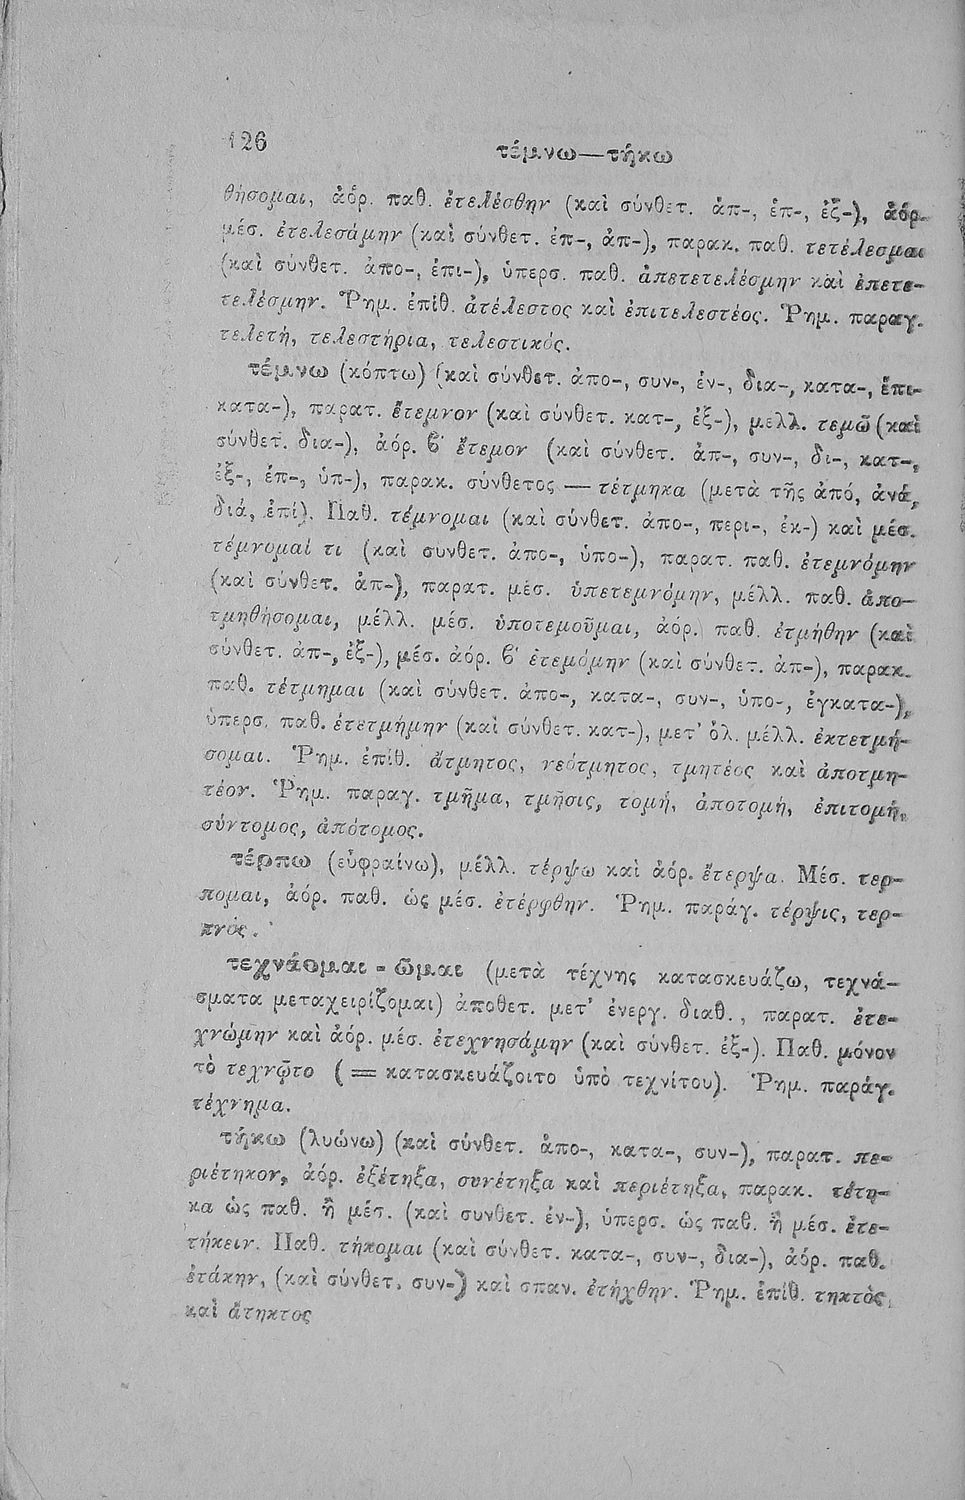 126
τέμνω—τήκω
θήσομαι, ἀόρ. παθ. ἐτελέσθην (καὶ σύνθετ. ἀπ-, ἐπ-, ἐξ-), ἀόρ.
μέσ. ἐτελεσάμην (καὶ σύνθετ. ἐπ-, ἀπ-), παρακ. παθ. τετέλεσμαι
(καὶ σύνθετ. ἀπο-, ἐπι-), ὑπερσ. παθ. ἀπετετελέσμην καὶ ἐπετε-
τελέσμην. Ῥημ. ἐπίθ. ἀτέλεστος καὶ ἐπιτελεστέος. Ῥημ. παραγ.
τελετή, τελεστήρια, τελεστικός.
τέμνω (κόπτω) (καὶ σύνθετ. ἀπο-, συν-, ἐν-, δια-, κατα-, ἐπι-
κατα-), παρατ. ἔτεμνον (καὶ σύνθετ. κατ-, ἐξ-), μελλ. τεμῶ (καὶ
σύνθετ. δια-), ἀόρ. β′ ἔτεμον (καὶ σύνθετ. ἀπ-, συν-, δι-, κατ-,
ἐξ-, ἐπ-, ὑπ-), παρακ. σύνθετος — τέτμηκα (μετὰ τῆς ἀπό, ἀνά,
διά, ἐπί). Παθ. τέμνομαι (καὶ σύνθετ. ἀπο-, περι-, ἐκ-) καὶ μέσ.
τέμνομαί τι (καὶ συνθετ. ἀπο-, ὑπο-), παρατ. παθ. ἐτεμνόμην
(καὶ σύνθετ. ἀπ-), παρατ. μέσ. ὑπετεμνόμην, μέλλ. παθ. ἀπο-
τμηθήσομαι, μέλλ. μέσ. ὑποτεμοῦμαι, ἀόρ. παθ. ἐτμήθην (καὶ
σύνθετ. ἀπ-, ἐξ-), μέσ. ἀόρ. β′ ἐτεμόμην (καὶ σύνθετ. ἀπ-), παρακ.
παθ. τέτμημαι (καὶ σύνθετ. ἀπο-, κατα-, συν-, ὑπο-, ἐγκατα-),
ὑπερσ. παθ. ἐτετμήμην (καὶ σύνθετ. κατ-), μετ' ὀλ. μέλλ. ἐκτετμή-
σομαι. Ῥημ. ἐπίθ. ἄτμητος, νεότμητος, τμητέος καὶ ἀποτμη-
τέον. Ῥημ. παραγ. τμῆμα, τμῆσις, τομή, ἀποτομή, ἐπιτομή,
σύντομος, ἀπότομος.
τέρπω (εὐφραίνω), μέλλ. τέρψω καὶ ἀόρ. ἔτερψα. Μέσ. τερ-
πομαι, ἀόρ. παθ. ὡς μέσ. ἐτέρφθην. Ῥημ. παράγ. τέρψις, τερ-
πνός.
τεχνάομαι - ῶμαι (μετὰ τέχνης κατασκευάζω, τεχνά-
σματα μεταχειρίζομαι) ἀποθετ. μετ' ἐνεργ. διαθ., παρατ. ἐτε-
χνώμην καὶ ἀόρ. μέσ. ἐτεχνησάμην (καὶ σύνθετ. ἐξ-). Παθ. μόνον
τὸ τεχνῷτο (= κατασκευάζοιτο ὑπὸ τεχνίτου). Ῥημ. παράγ.
τέχνημα.
τήκω (λυώνω) (καὶ σύνθετ. ἀπο-, κατα-, συν-), παρατ. πε-
ριέτηκον, ἀόρ. ἐξέτηξα, συνέτηξα καὶ περιέτηξα, παρακ. τέτη-
κα ὡς παθ. ἢ μέσ. (καὶ συνθετ. ἐν-), ὑπερσ. ὡς παθ. ἢ μέσ. ἐτε-
τήκειν. Παθ. τήκομαι (καὶ σύνθετ. κατα-, συν-, δια-), ἀόρ. παθ.
ἐτάκην, (καὶ σύνθετ. συν-) καὶ σπαν. ἐτήχθην. Ῥημ. ἐπίθ. τηκτὸς
καὶ ἄτηκτος